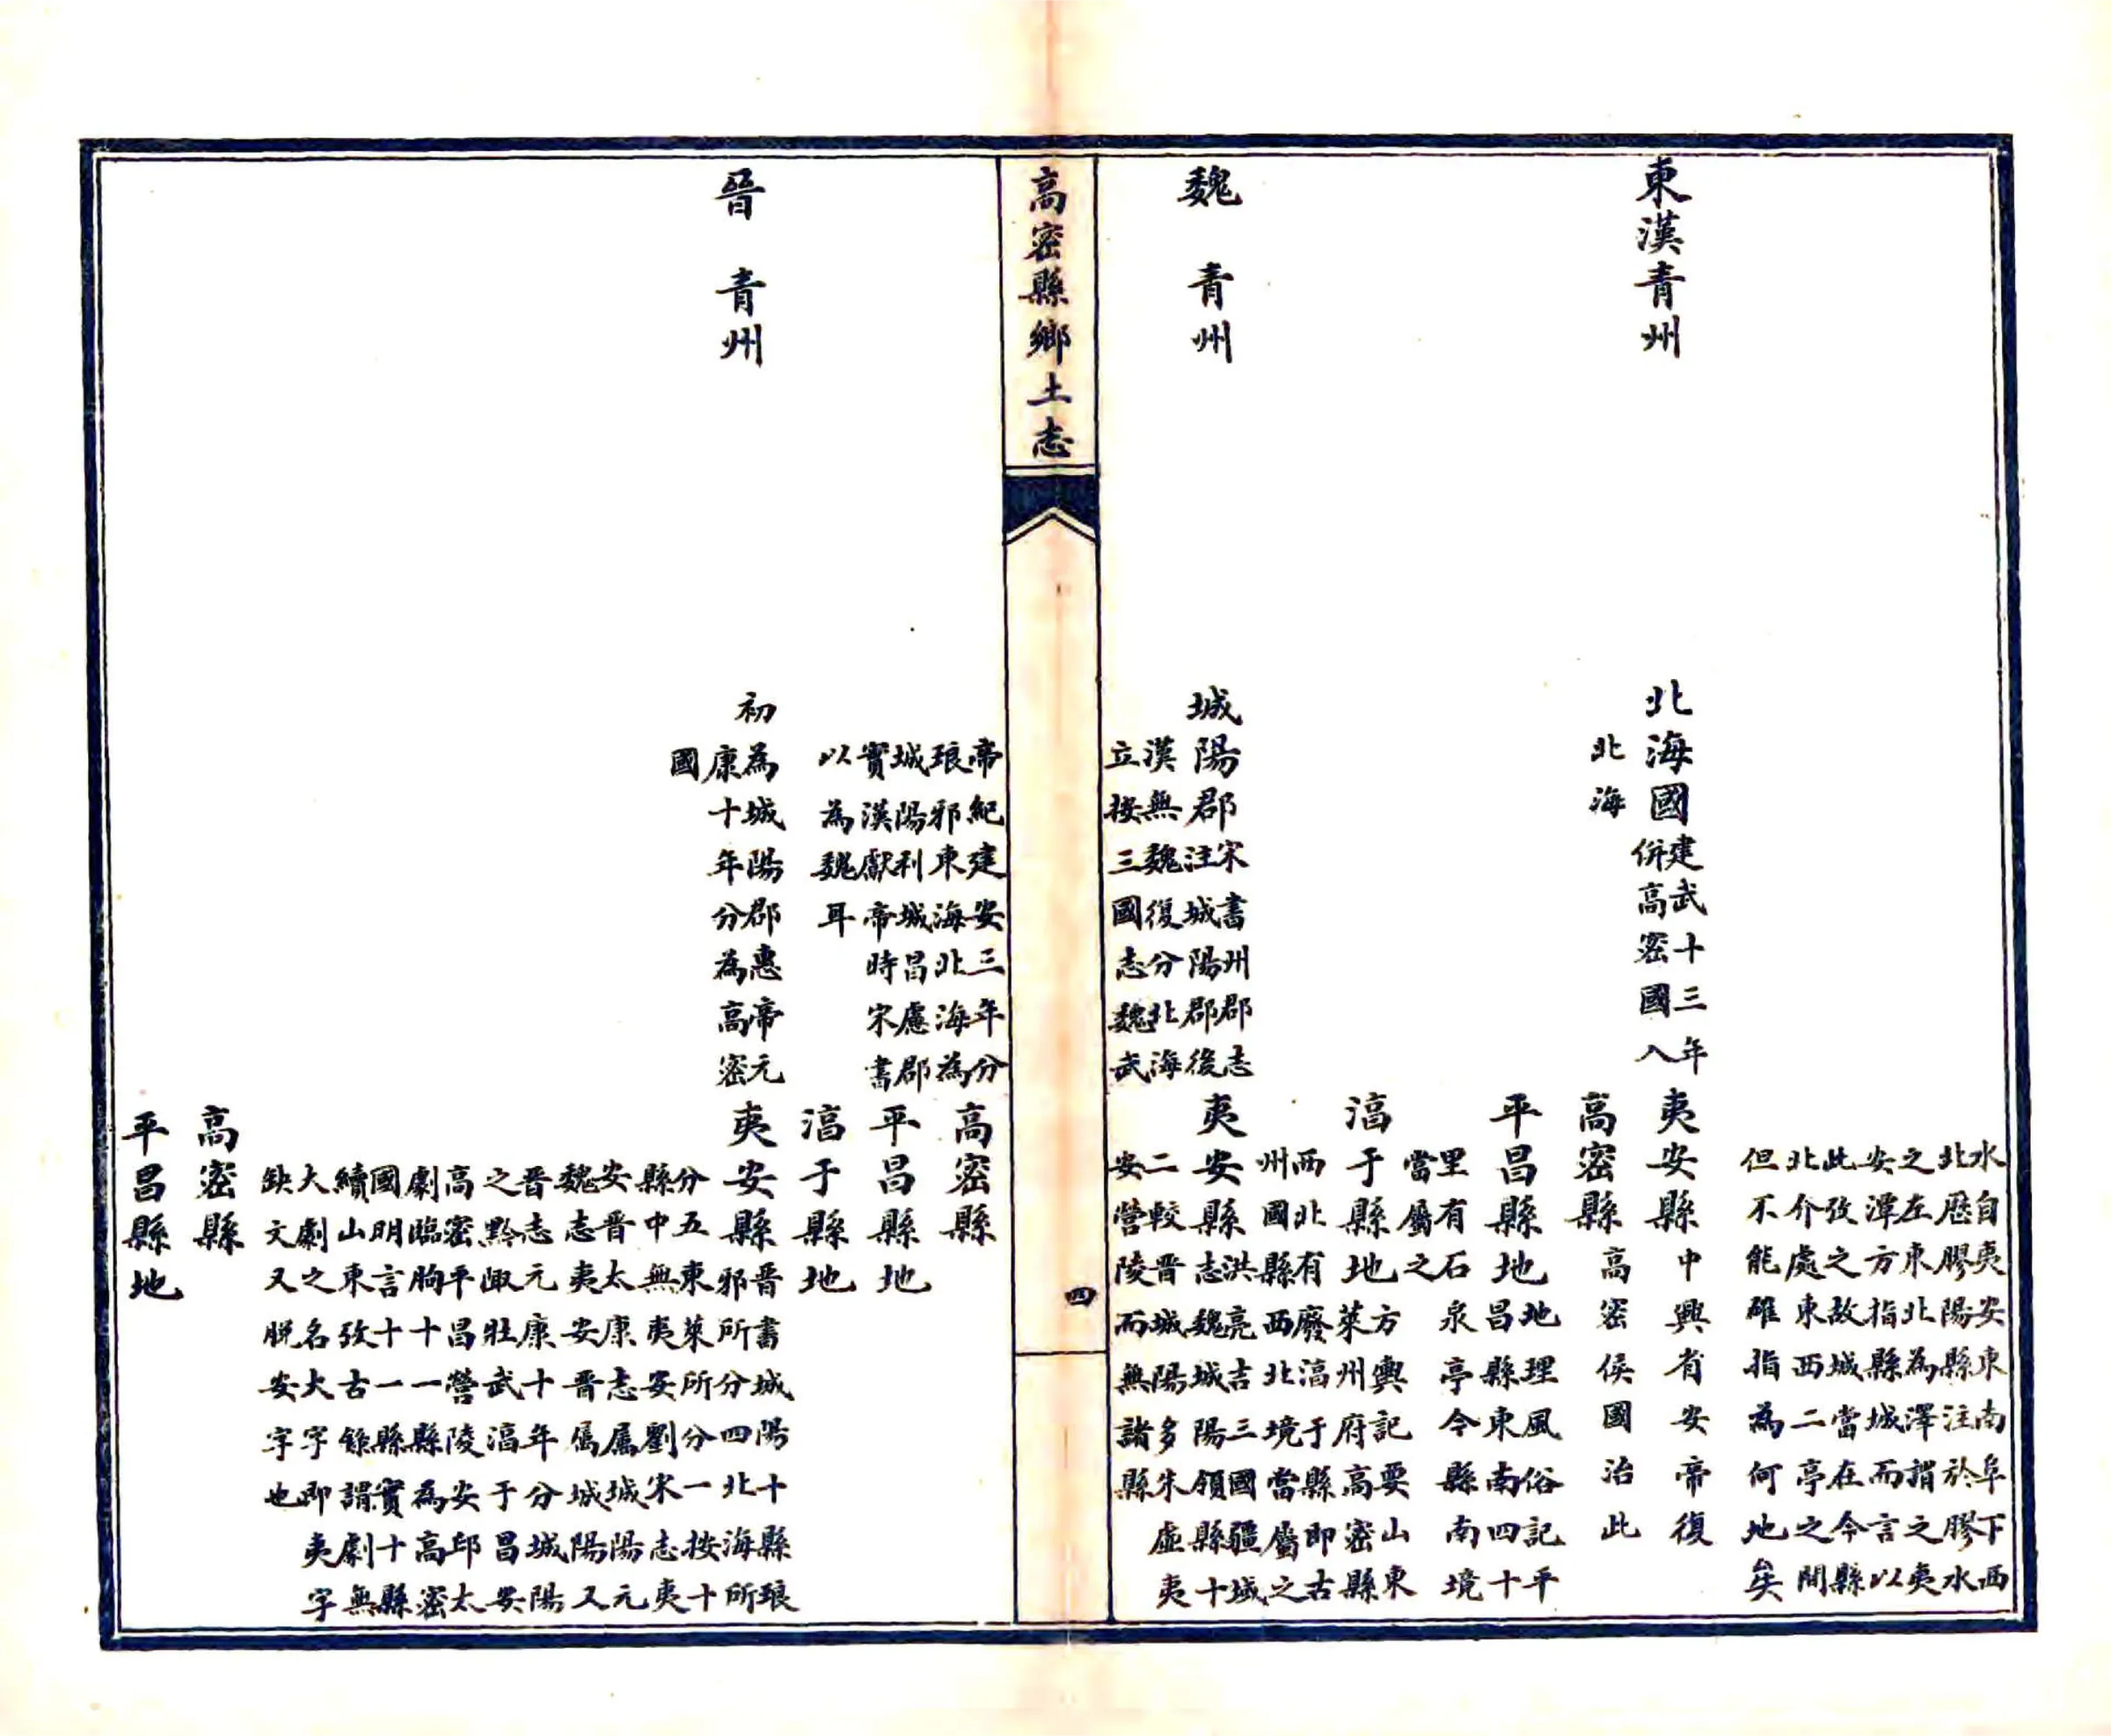 水自夷安東南阜下西
北歷膠陽縣注於膠水
之左東北為澤謂之夷
安潭方指縣城而言以
此攷之故城當在今縣
北介處東西二亭之間
但不能確指為何地矣
東漢青州
北海國
建武十三年
併高密國入
北海
夷安縣
中興省安帝復
高密縣
高密侯國治此
平昌縣地
地理風俗記平
昌縣東南四十
里有石泉亭今縣南境
當屬之
湻于縣地
方輿記要山東
萊州府高密縣
西北有廢湻于縣即古
州國縣西北境當屬之
魏 青州
城陽郡
宋書州郡志
注城陽郡後
漢無魏復分北海
立按三國志魏武
夷安縣
洪亮吉三國疆域
志魏城陽領縣十
二較晉城陽多朱虛夷
安營陵而無諸縣
高密縣鄉土志
四
帝紀建安三年分
琅邪東海北海為
城陽利城昌慮郡
實漢獻帝時宋書
以為魏耳
高密縣
平昌縣地
湻于縣地
晉 青州
初為城陽郡惠帝元
康十年分為高密
國
夷安縣
晉書城陽十縣琅
邪所分四北海所
分五東萊所分一按十
縣中無夷安劉宋志夷
安晉太康志屬城陽元
魏志夷安晉屬城陽又
晉志元康十年分城陽
之黔陬壯武湻于昌安
高密平昌營陵安邱太
劇臨朐十一縣為高密
國明言十一縣實十縣
續山東攷古錄謂劇無
大劇之名大字即夷字
缺文又脫安字也
高密縣
平昌縣地